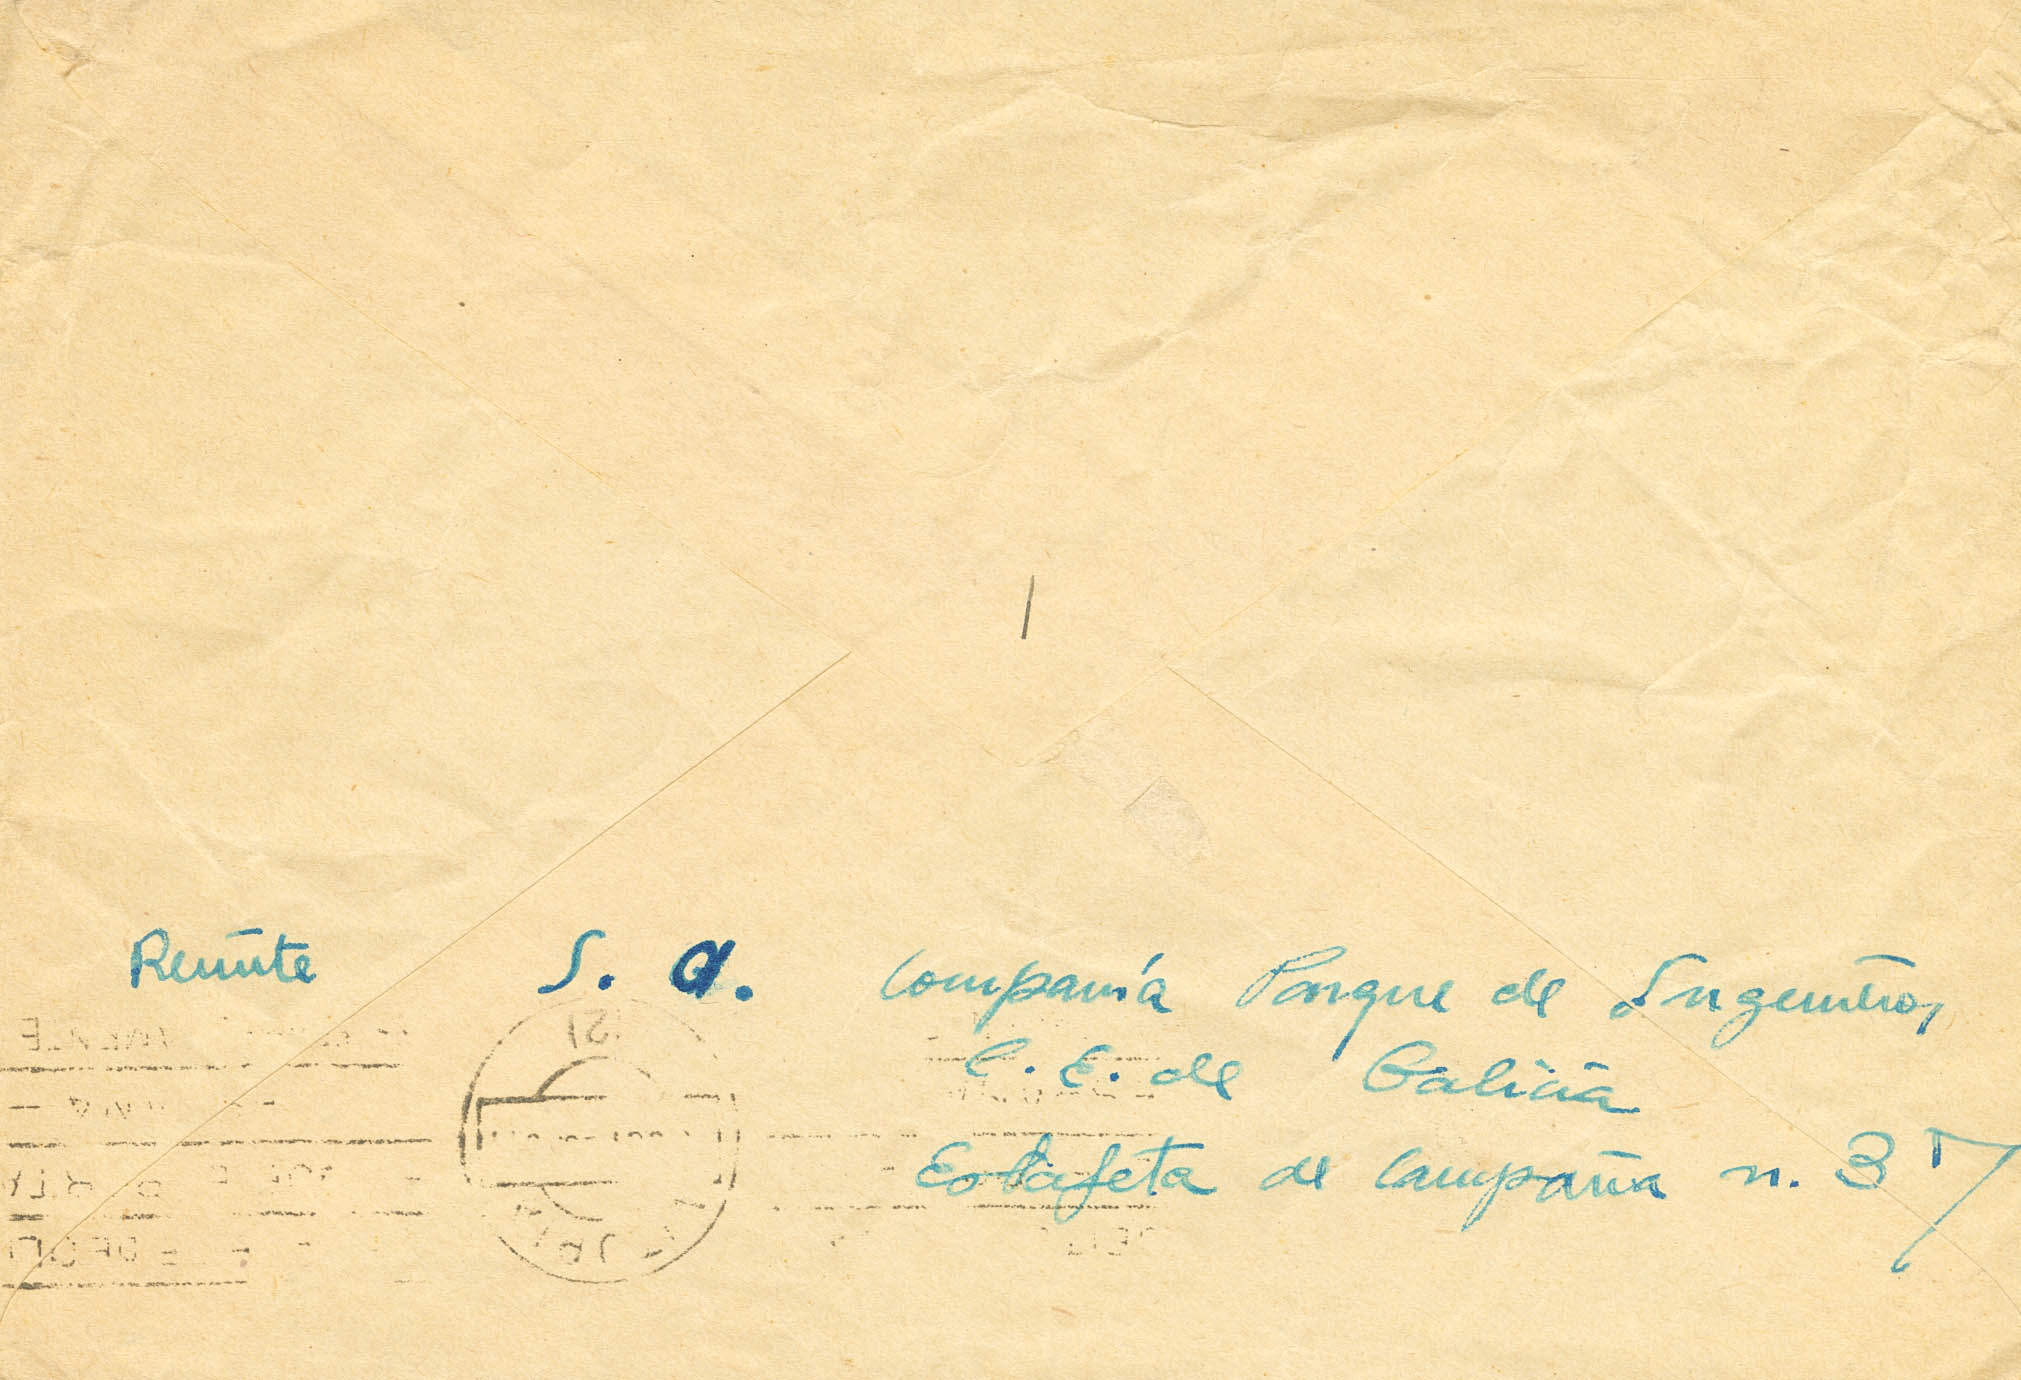 Remite S. A. Compañía Parque de Ingenieros,
C. E. de Galicia
Estafeta de Campaña n. 37